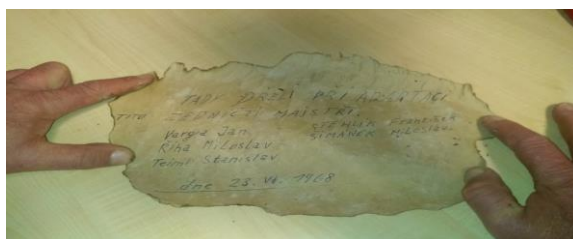 TADY DRŽELI PŘI
TITO ZEDNIČTÍ MAISTŘI.
Varga Jan STEHLÍK František
Říha Miloslav ŠIMÁNEK Miloslav
Teiml Stanislav
dne 25. VI. 1968